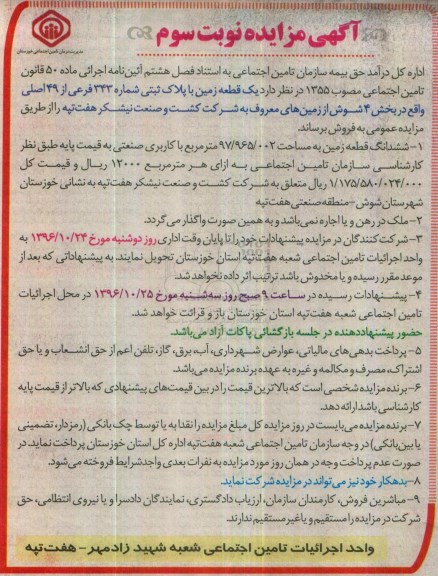 آگهی مزایده نوبت سوم
مدیریت درمان تامین اجتماعی خوزستان
اداره کل درآمد حق بیمه سازمان تامین اجتماعی به استناد فصل هشتم آئین‌نامه اجرائی ماده ۵۰ قانون
تامین اجتماعی مصوب ۱۳۵۵ در نظر دارد یک قطعه زمین با پلاک ثبتی شماره ۳۴۳ فرعی از ۴۹ اصلی
واقع در بخش ۴ شوش از زمین‌های معروف به شرکت کشت و صنعت نیشکر هفت‌تپه را از طریق
مزایده عمومی به فروش برساند.
۱- ششدانگ قطعه زمین به مساحت ۹۷/۹۶۵/۰۰۲ مترمربع با کاربری صنعتی به قیمت پایه طبق نظر
کارشناسی سازمان تامین اجتماعی به ازای هر مترمربع ۱۲۰۰۰ ریال و قیمت کل
۱/۱۷۵/۵۸۰/۰۲۴/۰۰۰ ریال متعلق به شرکت کشت و صنعت نیشکر هفت‌تپه به نشانی خوزستان
شهرستان شوش - منطقه صنعتی هفت‌تپه
۲- ملک در رهن و یا اجاره نمی‌باشد و به همین صورت واگذار می‌گردد.
۳- شرکت‌کنندگان در مزایده پیشنهادات خود را تا پایان وقت اداری روز دوشنبه مورخ ۱۳۹۶/۱۰/۲۴ به
واحد اجرائیات تامین اجتماعی شعبه هفت‌تپه استان خوزستان تحویل نمایند. به پیشنهاداتی که بعد از
موعد مقرر رسیده و یا مخدوش باشد ترتیب اثر داده نخواهد شد.
۴- پیشنهادات رسیده در ساعت ۹ صبح روز سه‌شنبه مورخ ۱۳۹۶/۱۰/۲۵ در محل اجرائیات
تامین اجتماعی شعبه هفت‌تپه استان خوزستان باز و قرائت خواهد شد.
حضور پیشنهاددهنده در جلسه بازگشائی پاکات آزاد می‌باشد.
۵- پرداخت بدهی‌های مالیاتی، عوارض شهرداری، آب، برق، گاز، تلفن اعم از حق انشعاب و یا حق
اشتراک، مصرف و مکالمه و غیره به عهده برنده مزایده می‌باشد.
۶- برنده مزایده شخصی است که بالاترین قیمت را در بین قیمت‌های پیشنهادی که بالاتر از قیمت پایه
کارشناسی باشد ارائه دهد.
۷- برنده مزایده می‌بایست در روز مزایده کل مبلغ مزایده را نقدا به یا توسط چک بانکی (رمزدار، تضمینی
یا بین‌بانکی) در وجه سازمان تامین اجتماعی شعبه هفت‌تپه اداره کل استان خوزستان پرداخت نماید. در
صورت عدم پرداخت وجه در همان روز مورد مزایده به نفرات بعدی واجد شرایط فروخته می‌شود.
۸- بدهکار خود نیز می‌تواند در مزایده شرکت نماید.
۹- مباشرین فروش، کارمندان سازمان، ارزیاب دادگستری، نمایندگان دادسرا و یا نیروی انتظامی، حق
شرکت در مزایده را مستقیم و یا غیر مستقیم ندارند.
واحد اجرائیات تامین اجتماعی شعبه شهید زادمهر - هفت‌تپه